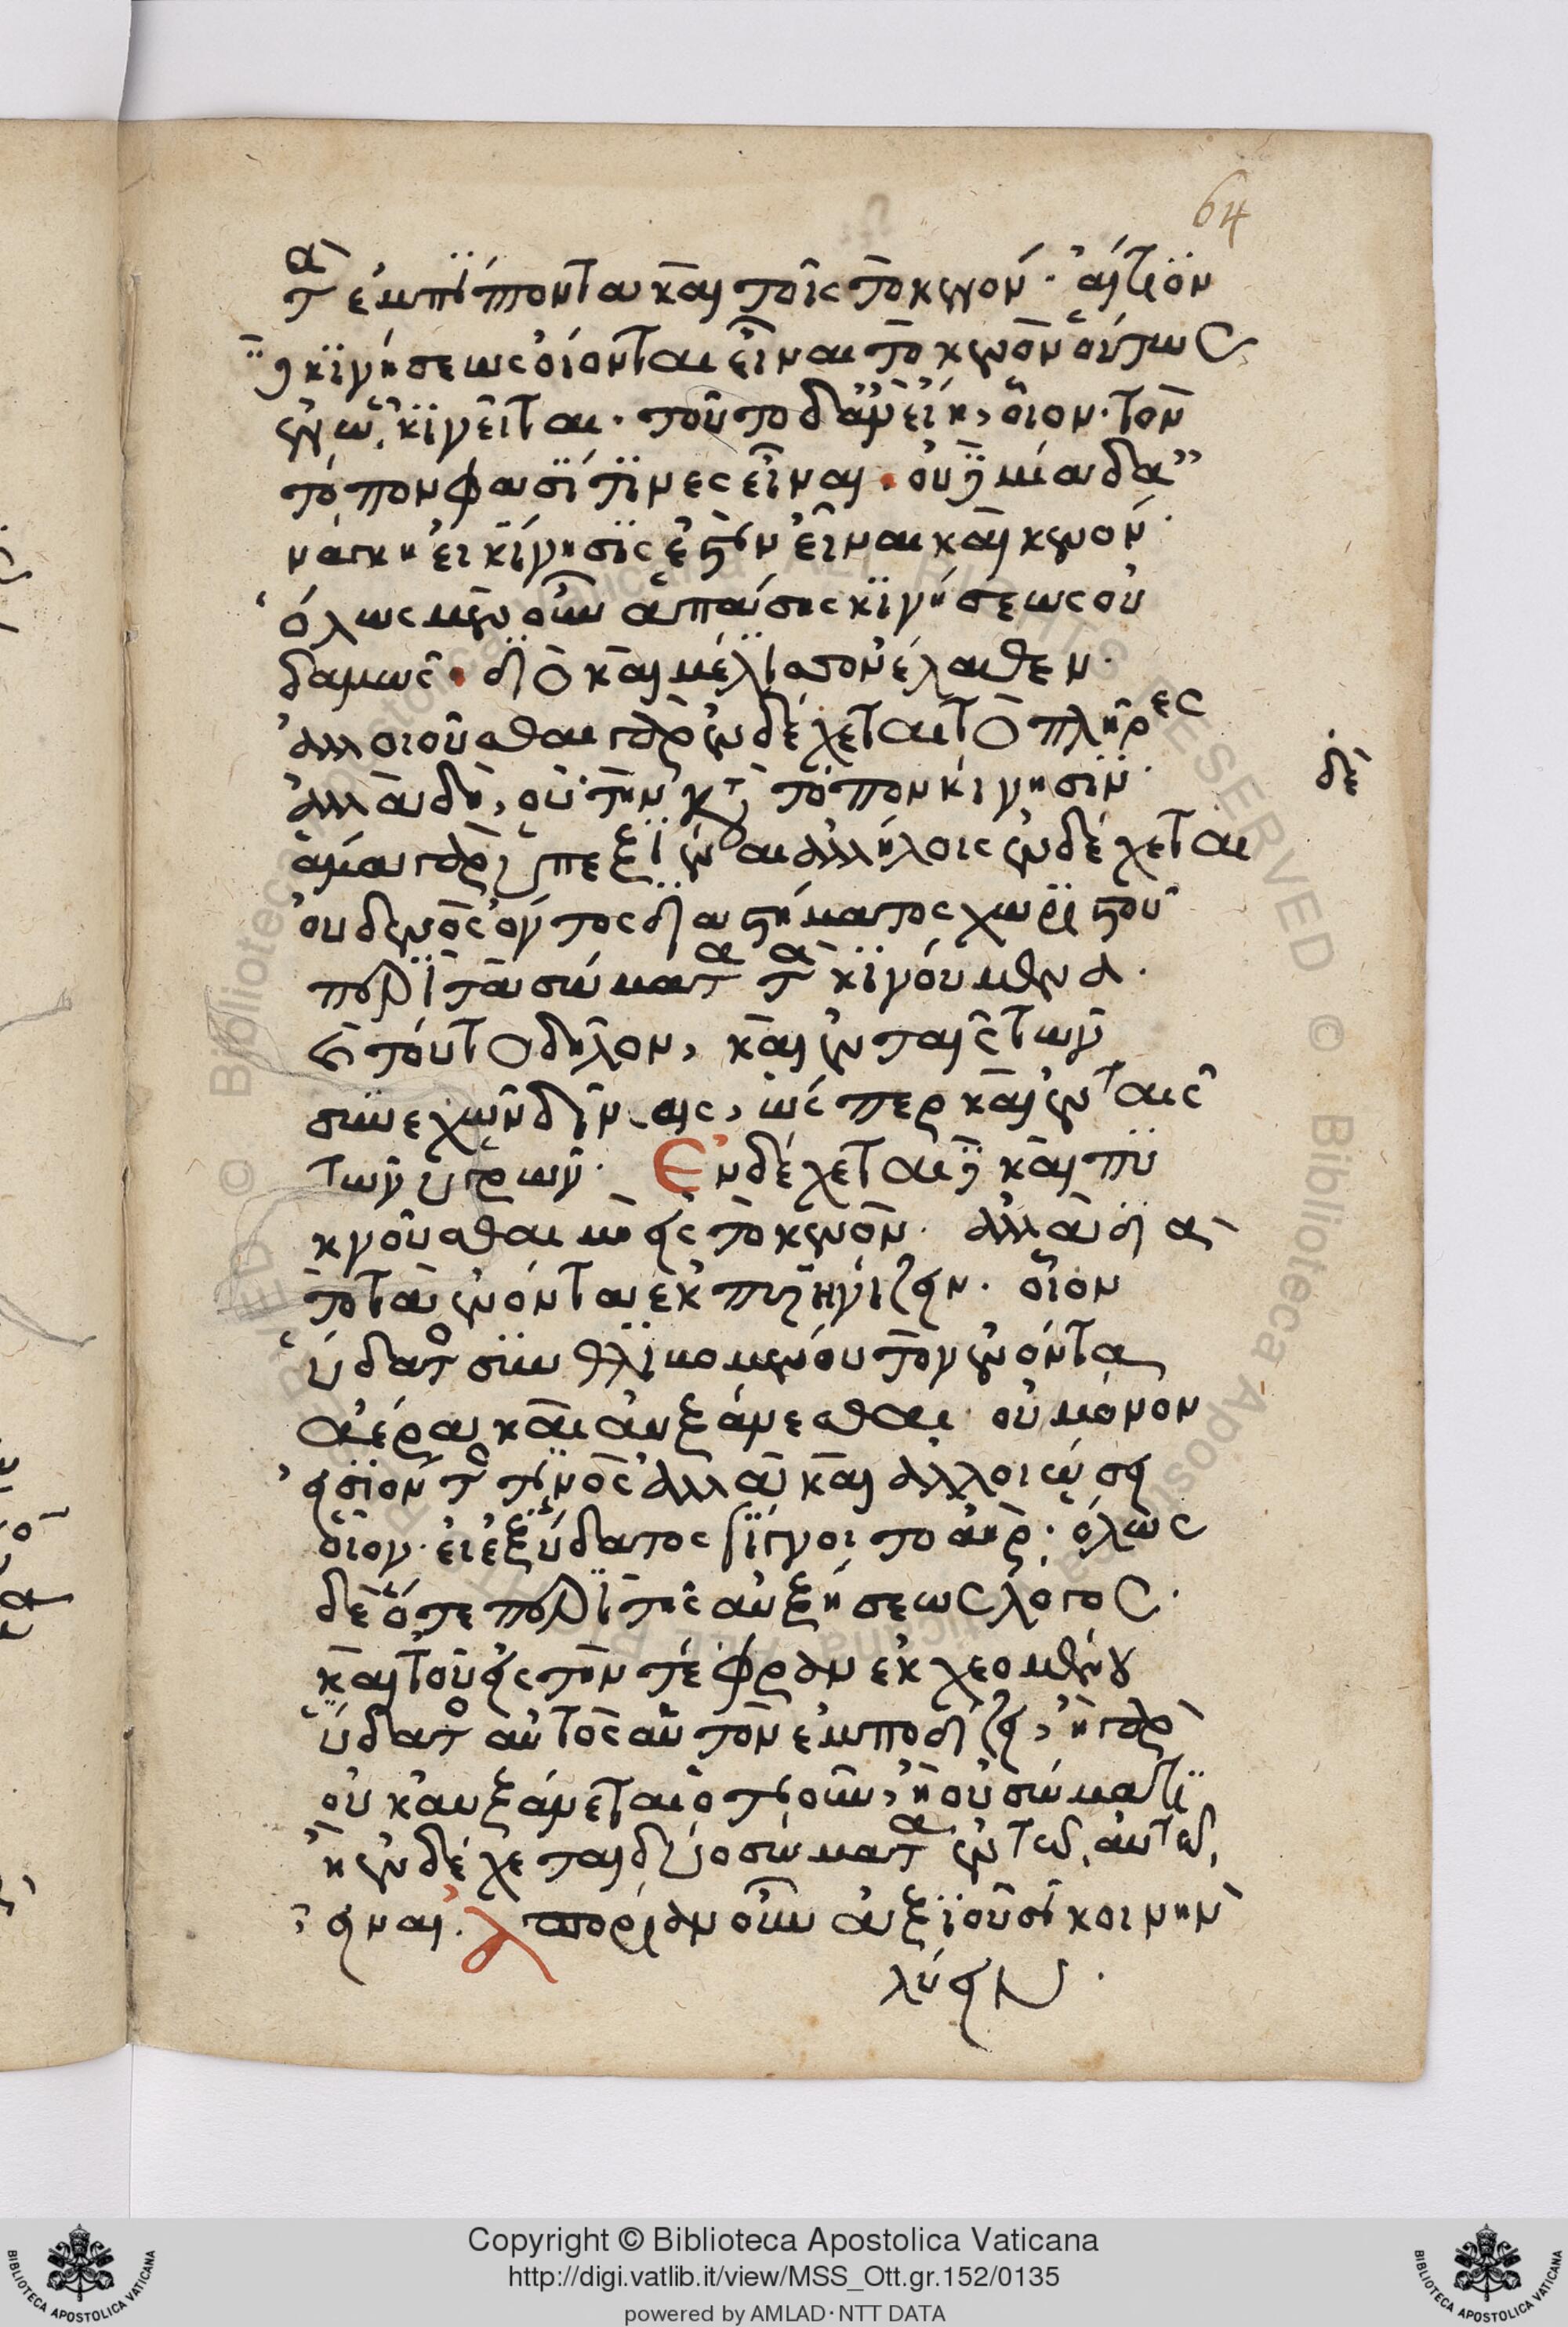 64
τὰ ἐμπίπτοντα καὶ τοῖς τὸ κενόν. αἴτιον
δὲ κινήσεως οἴονται εἶναι τὸ κενὸν οὕτως
ἐν ᾧ κινεῖται. τοῦτο δ' ἂν εἴη, οἷον τὸν
τόπον φασί τινες εἶναι. οὐδεμία δ' ἀ
νάγκη εἰ κίνησις ἐστὶν εἶναι καὶ κενόν.
ὅλως μὲν οὖν ἁπάσης κινήσεως οὐ
δαμῶς. διὸ καὶ μέλισσον ἔλαθεν.
ἀλλοιοῦσθαι γὰρ ἐνδέχεται τὸ πλῆρες
ἀλλὰ δὴ, οὐ τὴν κατὰ τόπον κίνησιν.
δὲ
ἅμα γὰρ ὑπεξιέναι ἀλλήλοις ἐνδέχεται
οὐδενὸς ὄντος διαστήματος χωριστοῦ
παρὰ τὰ σώματα τὰ κινούμενα.
καὶ τοῦτο δῆλον, καὶ ἐν ταῖς τῶν
συνεχῶν δίναις, ὥσπερ καὶ ἐν ταῖς
τῶν ὑγρῶν. Ἐνδέχεται δὲ καὶ πυ
κνοῦσθαι μὴ εἰς τὸ κενὸν. ἀλλὰ διὰ
τὸ τὰ ἐνόντα ἐκπυρηνίζειν. οἷον
ὕδατος συνθλιβομένου τὸν ἐνόντα
ἀέρα καὶ αὐξάνεσθαι οὐ μόνον
εἰσιόντος τινὸς ἀλλὰ καὶ ἀλλοιώσει
οἷον. εἰ ἐξ ὕδατος γίγνοιτο ἀὴρ. ὅλως
δὲ ὅ τε περὶ τῆς αὐξήσεως λόγος.
καὶ τοῦ εἰς τὴν τέφραν ἐκχεομένου
ὕδατος αὐτὸς αὑτὸν ἐμποδίζει, ἢ γὰρ
οὐκ αὐξάνεται ὁτιοῦν, ἢ οὐ σώματι
ἢ ἐνδέχεται δύο σώματα ἐν τῷ αὐτῷ
εἶναι. ἀπορίαν οὖν ἀξιοῦσι κοινὴν
λύειν.
Copyright © Biblioteca Apostolica Vaticana
http://digi.vatlib.it/view/MSS_Ott.gr.152/0135
powered by AMLAD · NTT DATA